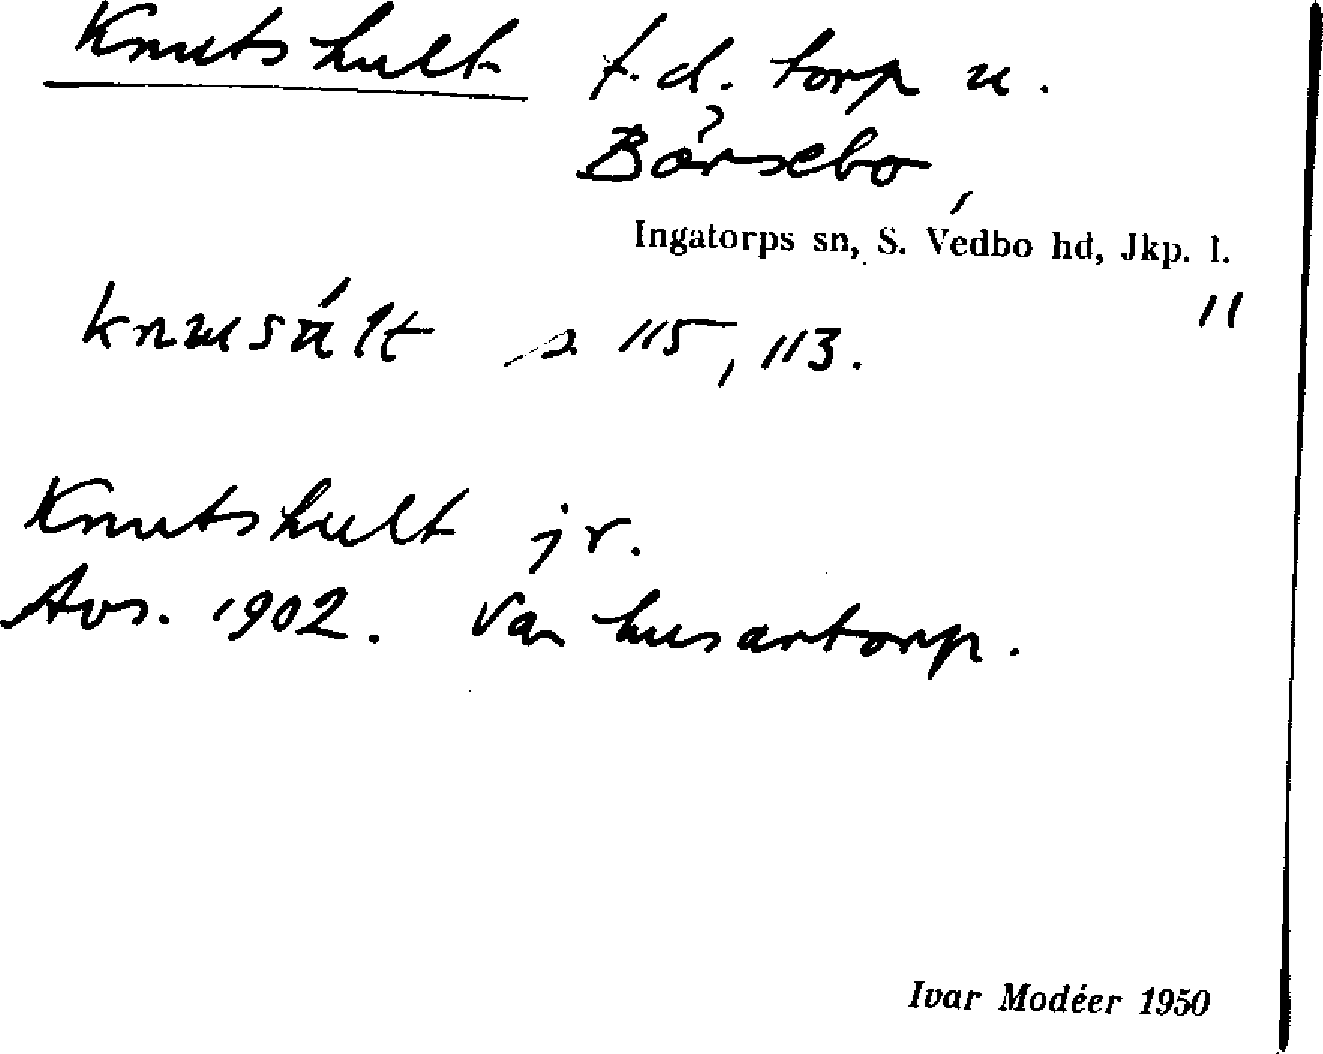 Knutshult f.d. torp u.
Bårsebo,
Ingatorps sn, S. Vedbo hd, Jkp. l.
11
knusált 115, 113.
Knutshult jr.
Avs. 1902. Var husartorp.
Ivar Modéer 1950